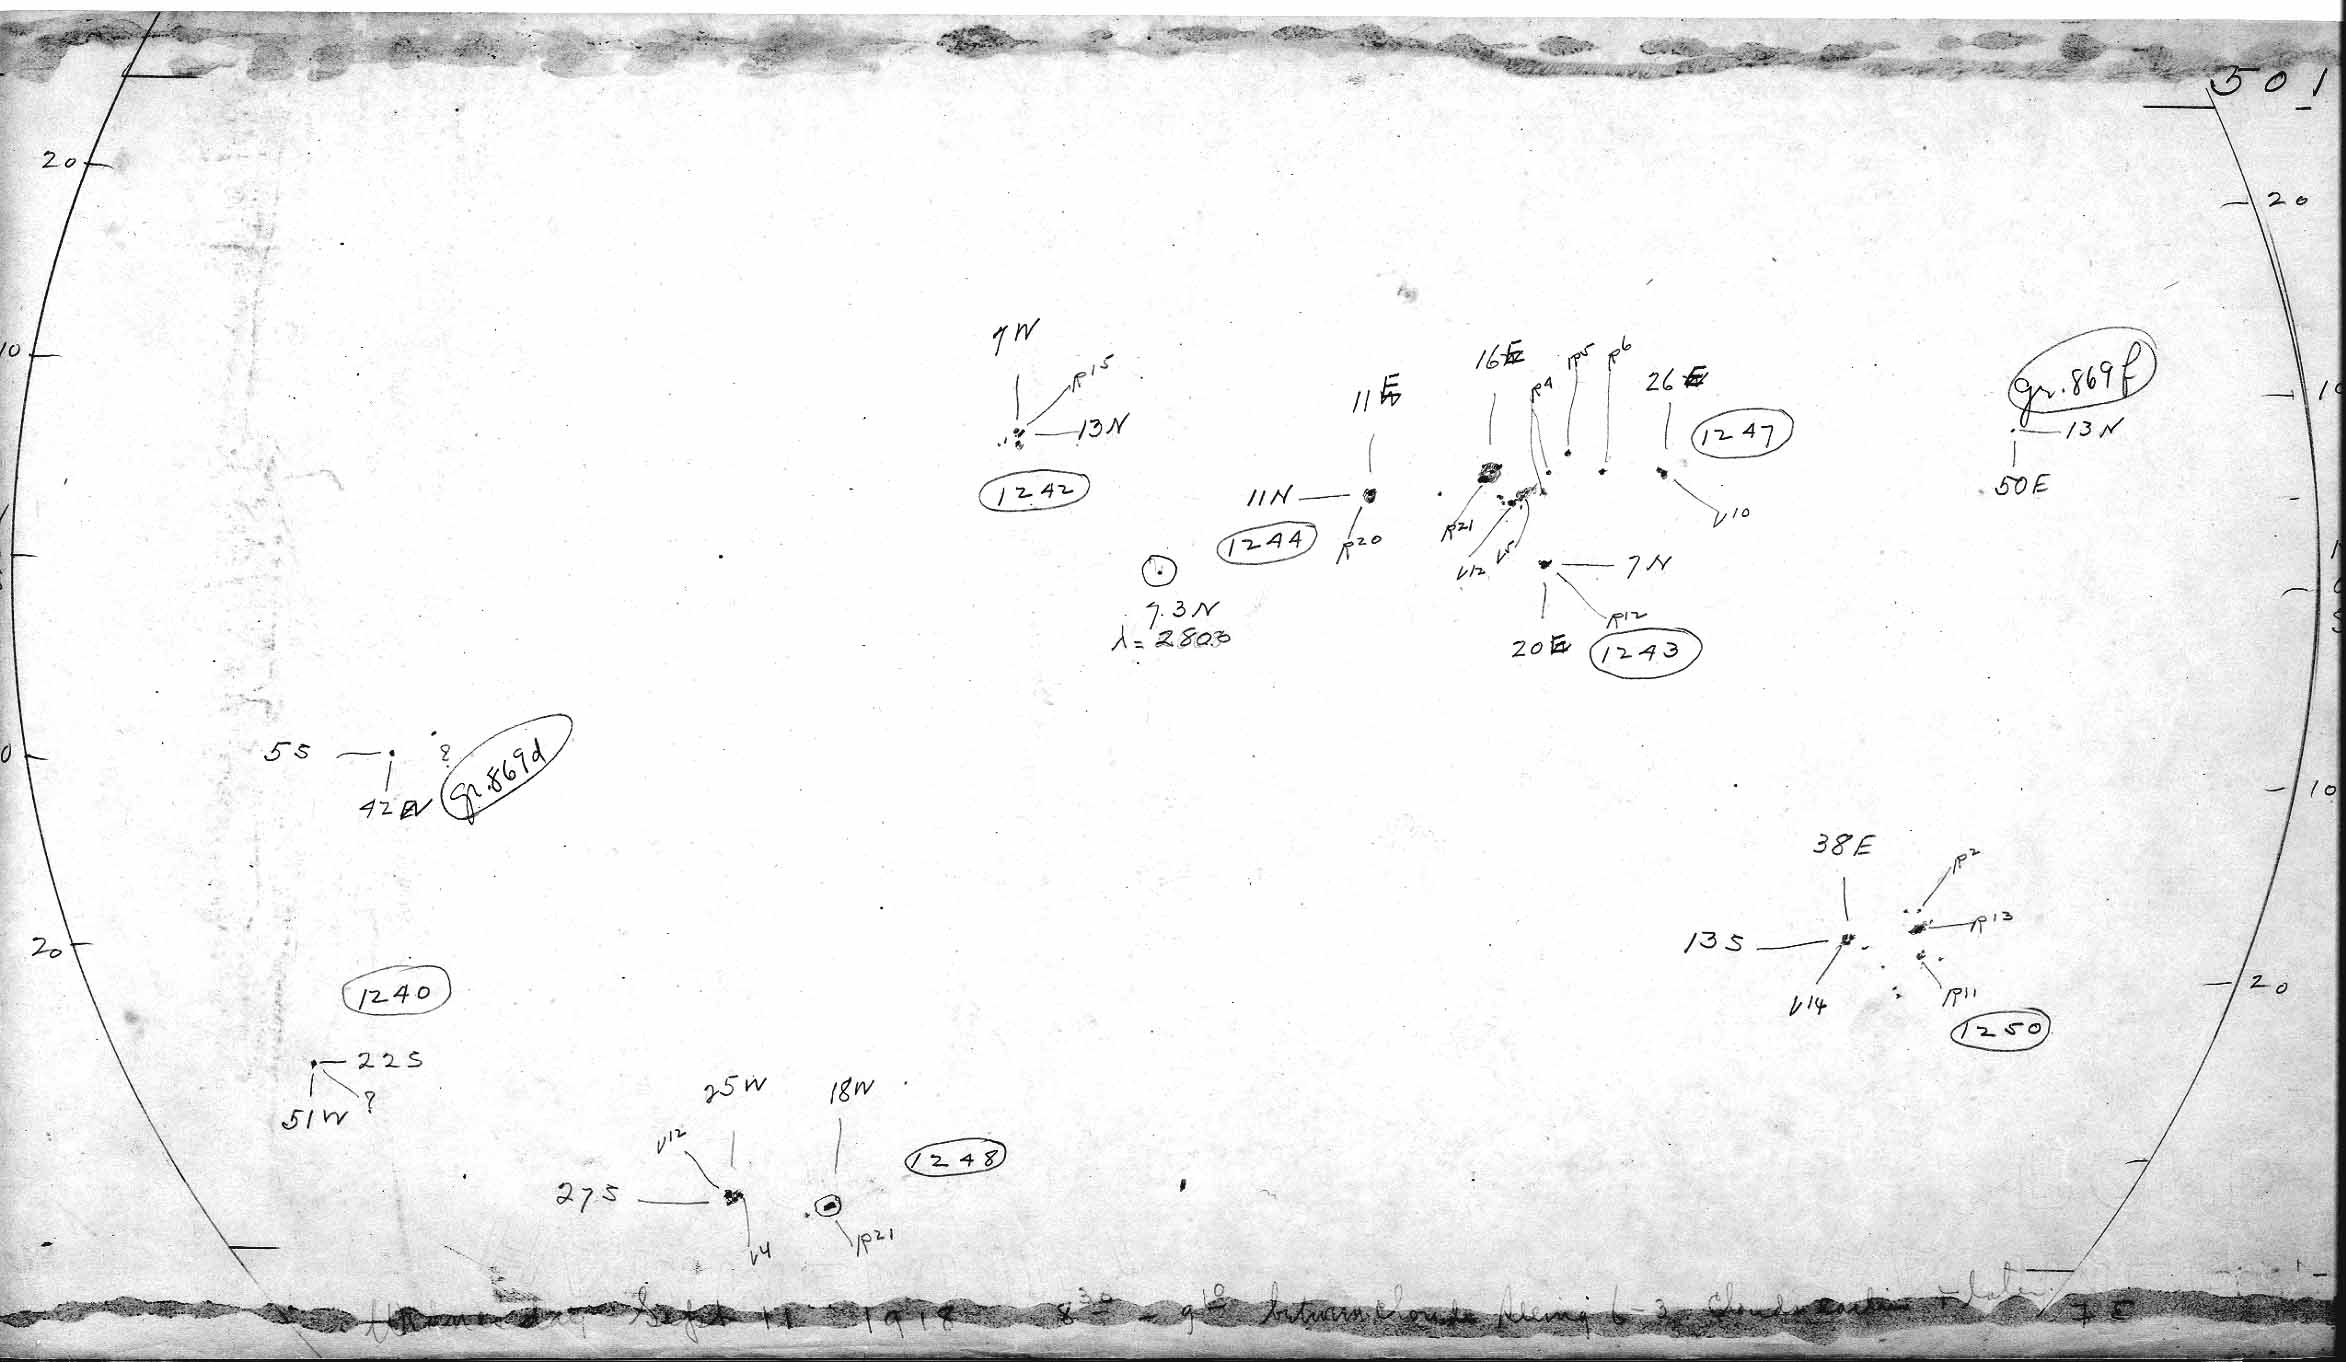 501
20
20
10
10
7W
R15
13N
1242
11E
16E
R4
R5
R6
26E
1247
gr.869f
13N
50E
11N
1244
R20
R21
V12
V5
V10
7N
R12
20E
1243
7.3N
λ=280.
5S
?
42W
gr.869d
0
10
38E
R2
R13
13S
V14
R11
1250
20
20
1240
22S
?
51W
25W
18W
V12
1248
27S
V4
R21
Sept 11 1918 8 30 - 9 10 between clouds Seeing 6-3 Clouds earlier & later